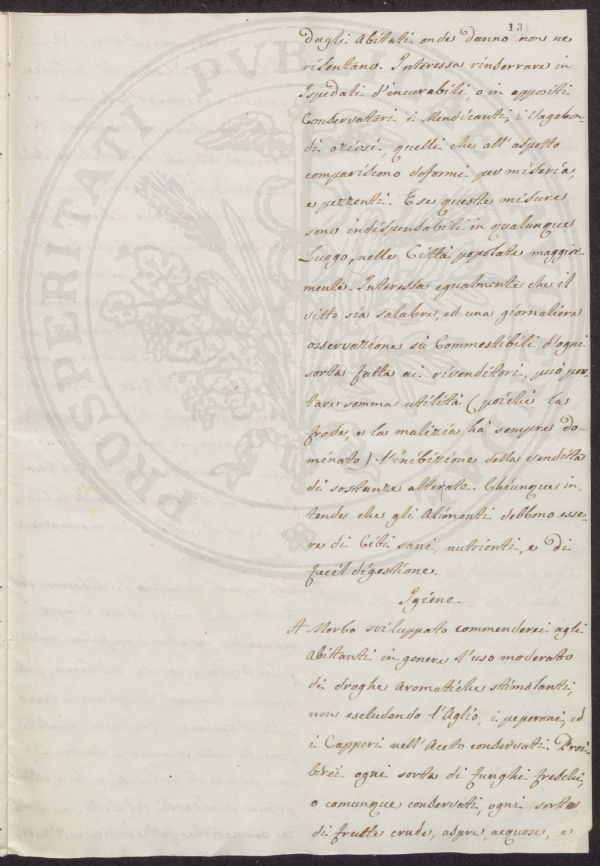 13
dagli Abitati onde danno non ne
risentano. Interessa rinserrare in
Ispedali d'incurabili, o in appositi
Conservatori i Mendicanti, i Vagabon-
di oziosi, quelli che all'aspetto
compariscono deformi per miseria,
e pezzenti. E se queste misure
sono indispensabili in qualunque
Luogo, nelle Città popolate maggior-
mente. Interessa egualmente che il
vitto sia salubre, ed una giornaliera
osservazione sù Commestibili d'ogni
sorta fatta ai rivenditori, può por-
tare somma utilità (poichè la
frode, e la malizia hà sempre do-
minato) l'inibizione della vendita
di sostanze alterate. Chiunque in-
tende che gli Alimenti debbono esse-
re di Cibi sani, nutrienti, e di
facil digestione.
Igiene
A Morbo sviluppato commenderei agli
Abitanti in genere l'uso moderato
di droghe Aromatiche stimolanti,
non escludendo l'Aglio, i peperoni, ed
i Capperi nell'Aceto conservati. Proi-
birei ogni sorta di funghi freschi,
o comunque conservati, ogni sorta
di frutte crude, aspre, acquose, e
PROSPERITATI PVBLICAE